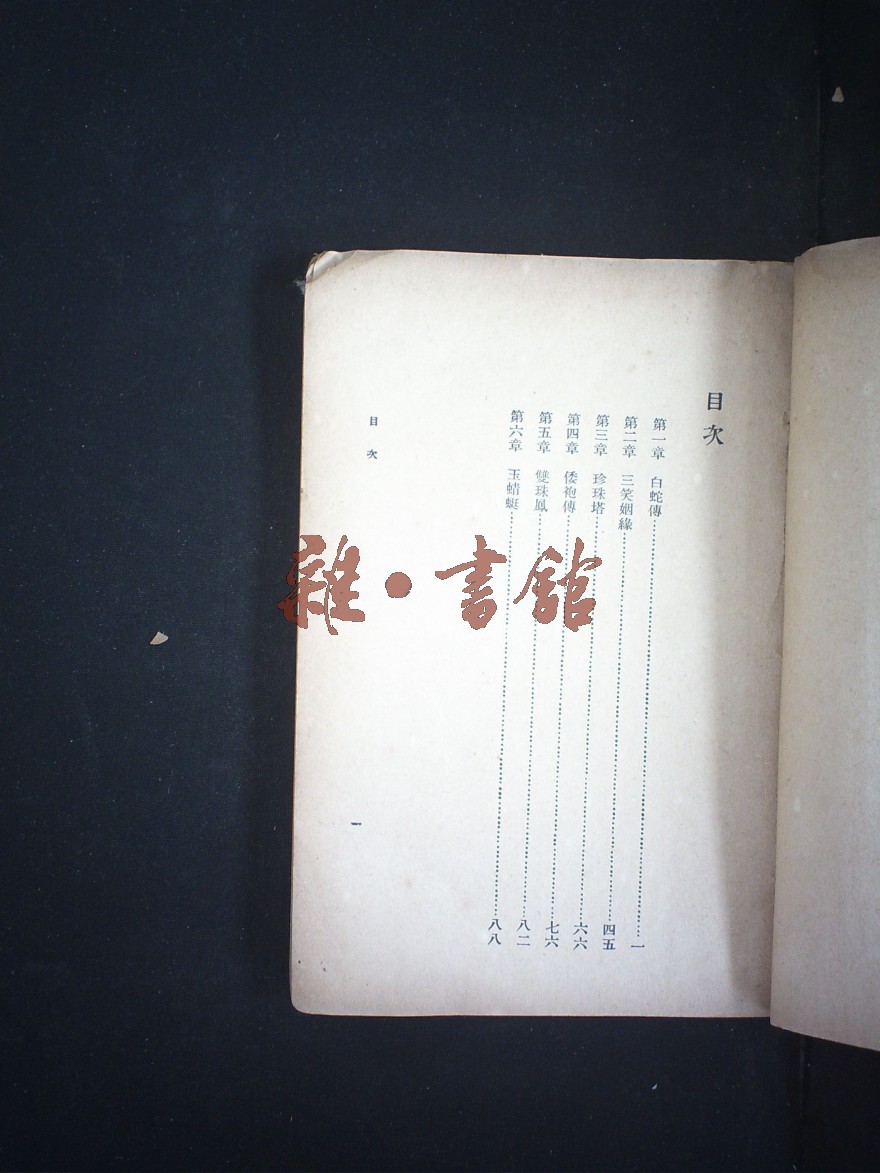 目次
第一章 白蛇傳……一
第二章 三笑姻緣……四五
第三章 珍珠塔……六六
第四章 倭袍傳……七六
第五章 雙珠鳳……八二
第六章 玉蜻蜓……八八
目次
一
雜·書館